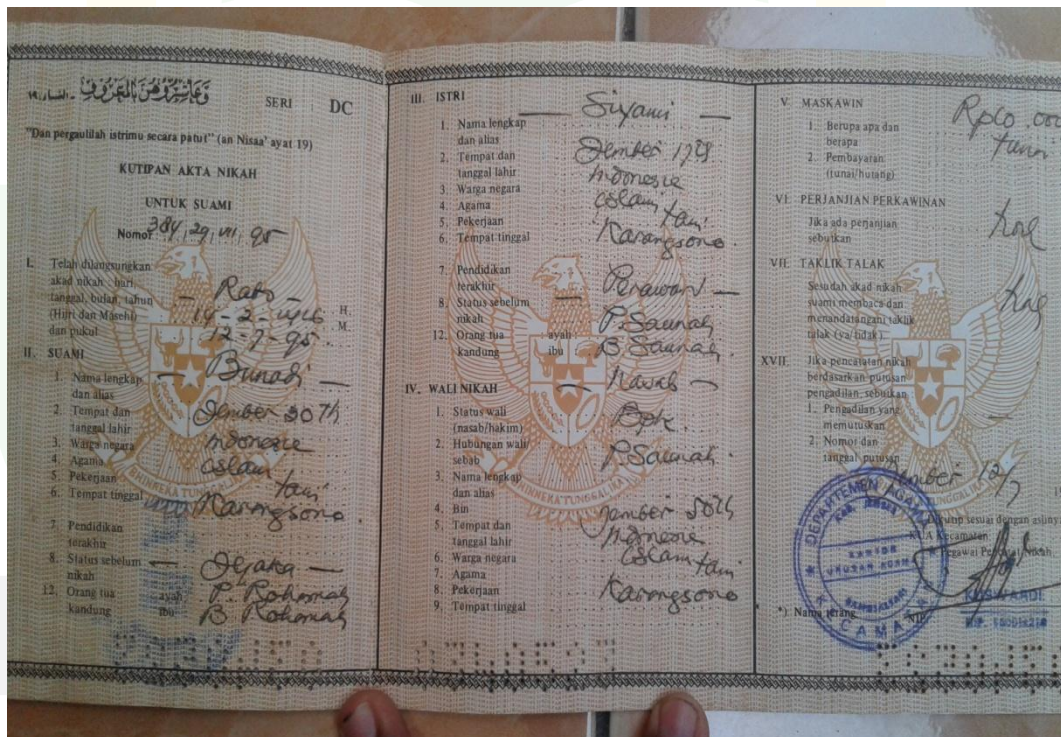 وَعَاشِرُوْهُنَّ بِالْمَعْرُوْفِ - النساء ١٩
SERI : DC
"Dan pergaulilah istrimu secara patut" (an Nisaa' ayat 19)
KUTIPAN AKTA NIKAH
UNTUK SUAMI
Nomor 384,29,VII,95
I. Telah dilangsungkan
akad nikah : hari,
tanggal, bulan, tahun
(Hijri dan Masehi)
dan pukul
— Rabo —
14-2-1416 H.
12-7-95 M.
II. SUAMI
1. Nama lengkap — Bunadi —
dan alias
2. Tempat dan Jember 30 Th
tanggal lahir
3. Warga negara Indonesie
4. Agama Islam
5. Pekerjaan tani
6. Tempat tinggal Karangsono
7. Pendidikan
terakhir
8. Status sebelum Jejaka —
nikah
12. Orang tua ayah P. Rohamah
kandung ibu B Rohamah
III. ISTRI
1. Nama lengkap — Siyami —
dan alias
2. Tempat dan Jember
tanggal lahir
3. Warga negara Indonesie
4. Agama Islam
5. Pekerjaan tani
6. Tempat tinggal Karangsono.
7. Pendidikan
terakhir
8. Status sebelum — Perawan —
nikah
12. Orang tua ayah P. Saunah
kandung ibu B Saunah.
IV. WALI NIKAH — Nasab —
1. Status wali
(nasab/hakim)
2. Hubungan wali Bpk.
sebab
3. Nama lengkap P. Saunah.
dan alias
4. Bin
5. Tempat dan Jember 50 Th
tanggal lahir
6. Warga negara Indonesie
7. Agama Islam
8. Pekerjaan tani
9. Tempat tinggal Karangsono
V. MASKAWIN
1. Berupa apa dan
berapa
2. Pembayaran
(tunai/hutang)
tunai
VI. PERJANJIAN PERKAWINAN
Jika ada perjanjian
sebutkan
VII. TAKLIK TALAK
Sesudah akad nikah
suami membaca dan
menandatangani taklik
talak (ya/tidak).
XVII. Jika pencatatan nikah
berdasarkan putusan
pengadilan, sebutkan
1. Pengadilan yang
memutuskan —
2. Nomor dan
tanggal putusan
Jember 12/7
Dikutip sesuai dengan aslinya
KUA Kecamatan
Pegawai Pencatat Nikah
DEPARTEMEN AGAMA
KANTOR
URUSAN AGAMA
KECAMATAN
*) Nama terang
NIP.
BHINNEKA TUNGGAL IKA
BHINNEKA TUNGGAL IKA